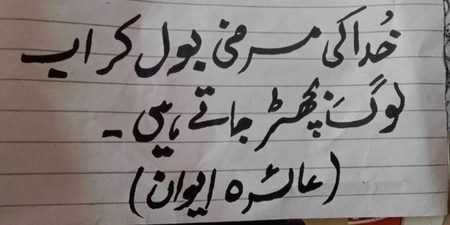 خُدا کی مرضی بول کر اب
لوگ بچھڑ جاتے ہیں ۔
(عائزہ ایوان)